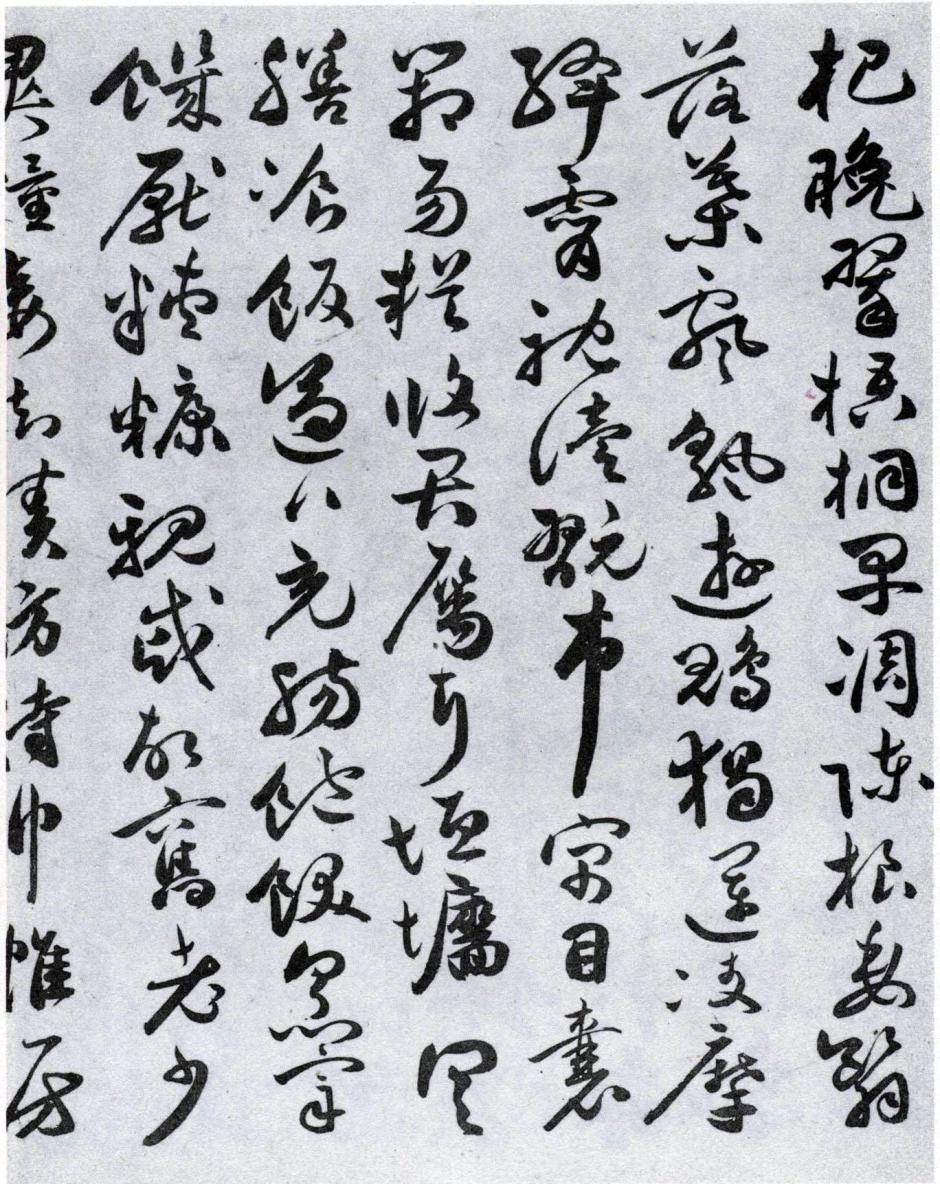 杷晚翠梧桐早凋陳根委翳
落葉飄飖遊鵾獨運凌摩
絳霄耽讀翫市寓目囊
箱易輶攸畏屬耳垣墻具
膳飡飯適口充腸飽飫烹宰
饑厭糟糠親戚故舊老少
異糧妾御績紡侍巾帷房